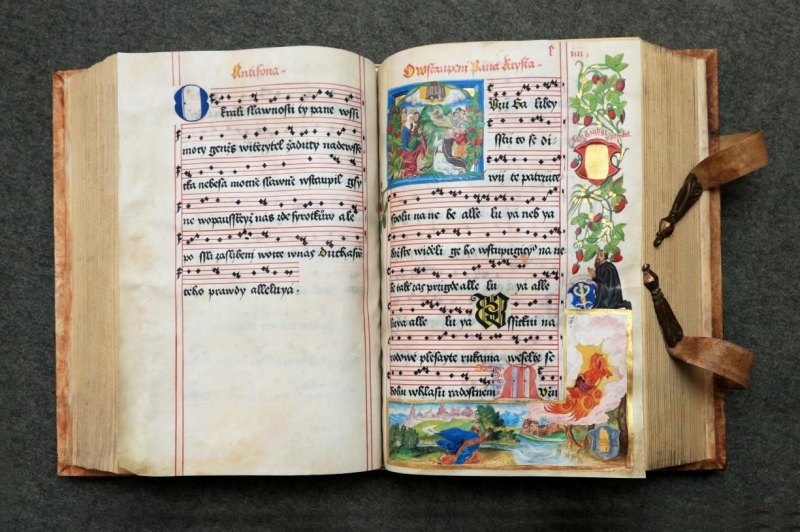 Antifona
O
krali slawnosti ty pane wssi
moty genžs witězytel zaduty nadewsse
cka nebesa mocně slawně wstaupil gsy
ne wopausstěyž nas zde syrotkůw ale
po ssli zaslibeni wotce wnas Ducha sw
teho prawdy alleluya.
O wstaupeni Pana Krysta
Vžij ga
ssu to se di
wij te patrzice
spolu na ne be alle lu ya neb ya
kožste widěli ge ho wstupugicý° na ne
be tak zas przigde alle lu ya alle
luya alle lu ya Wssickni na
rodowe plesayte rukama weselte se
bohu w hlasu radostnem